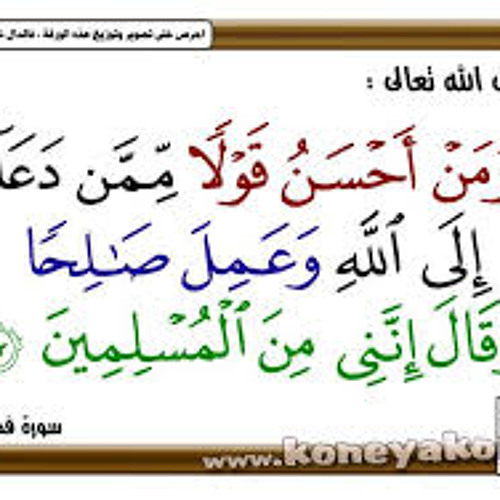 احرص على تصوير وتوزيع هذه الورقة ، فالدال
الله تعالى :
وَمَنْ أَحْسَنُ قَوْلًا مِّمَّن دَعَا
إِلَى ٱللَّهِ وَعَمِلَ صَـٰلِحًا
وَقَالَ إِنَّنِى مِنَ ٱلْمُسْلِمِينَ
سورة
www.koneyako